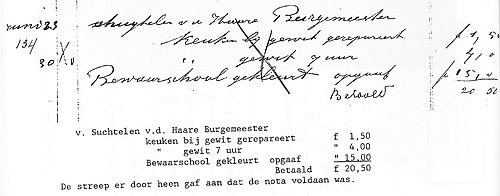 Juni 23 Suchtelen v.d Haare Burgemeester
134 Keuken bij gewit gerepareert f 1,50
30 X v. " gewit 7 uur 4,0
Bewaarschool gekleurt opgaaf f 15,0
Betaald 20 50
v. Suchtelen v.d. Haare Burgemeester
keuken bij gewit gerepareert f 1,50
" gewit 7 uur " 4,00
Bewaarschool gekleurt opgaaf " 15,00
Betaald f 20,50
De streep er door heen gaf aan dat de nota voldaan was.